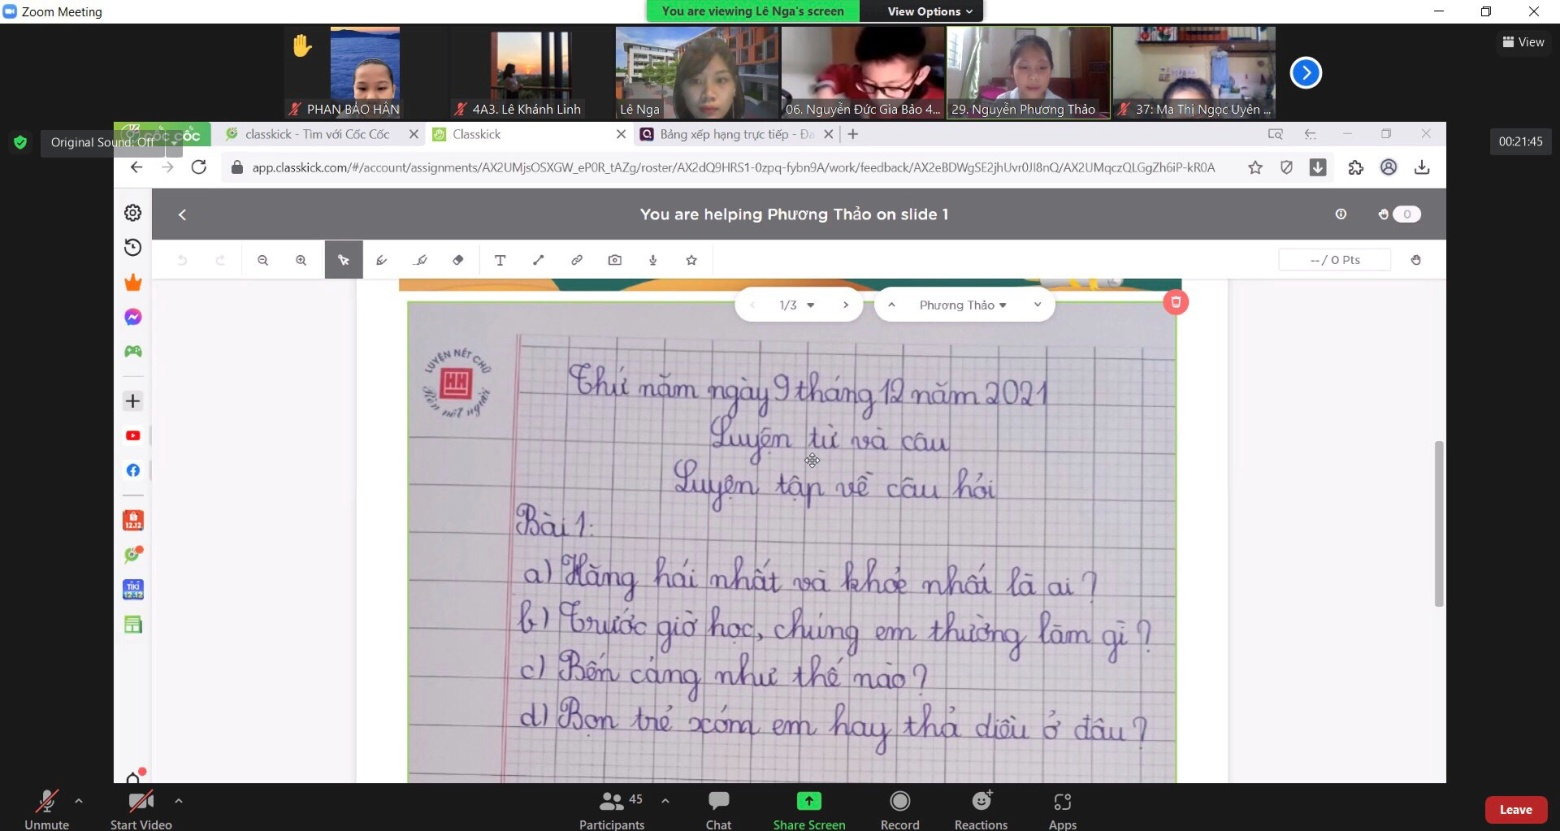 Zoom Meeting
You are viewing Lê Nga's screen
View Options
View
PHAN BẢO HÂN
4A3. Lê Khánh Linh
Lê Nga
06. Nguyễn Đức Gia Bảo 4...
29. Nguyễn Phương Thảo
37: Ma Thị Ngọc Uyên ...
Original Sound: Off
cốc cốc
classkick - Tìm với Cốc Cốc
Classkick
Bảng xếp hạng trực tiếp - Đa
00:21:45
app.classkick.com/#/account/assignments/AX2UMjsOSXGW_eP0R_tAZg/roster/AX2dQ9HRS1-0zpq-fybn9A/work/feedback/AX2eBDWgSE2jhUvr0JI8nQ/AX2UMqczQLGgZh6iP-kR0A
You are helping Phương Thảo on slide 1
0
T
-- / 0 Pts
1/3
Phương Thảo
LUYỆN NÉT CHỮ
HH
Rèn nết người
Thứ năm ngày 9 tháng 12 năm 2021
Luyện từ và câu
Luyện tập về câu hỏi
Bài 1:
a) Hăng hái nhất và khoẻ nhất là ai?
b) Trước giờ học, chúng em thường làm gì?
c) Bến cảng như thế nào?
d) Bọn trẻ xóm em hay thả diều ở đâu?
12.12
TIKI
12.12
Unmute
Start Video
45
Participants
Chat
Share Screen
Record
Reactions
Apps
Leave